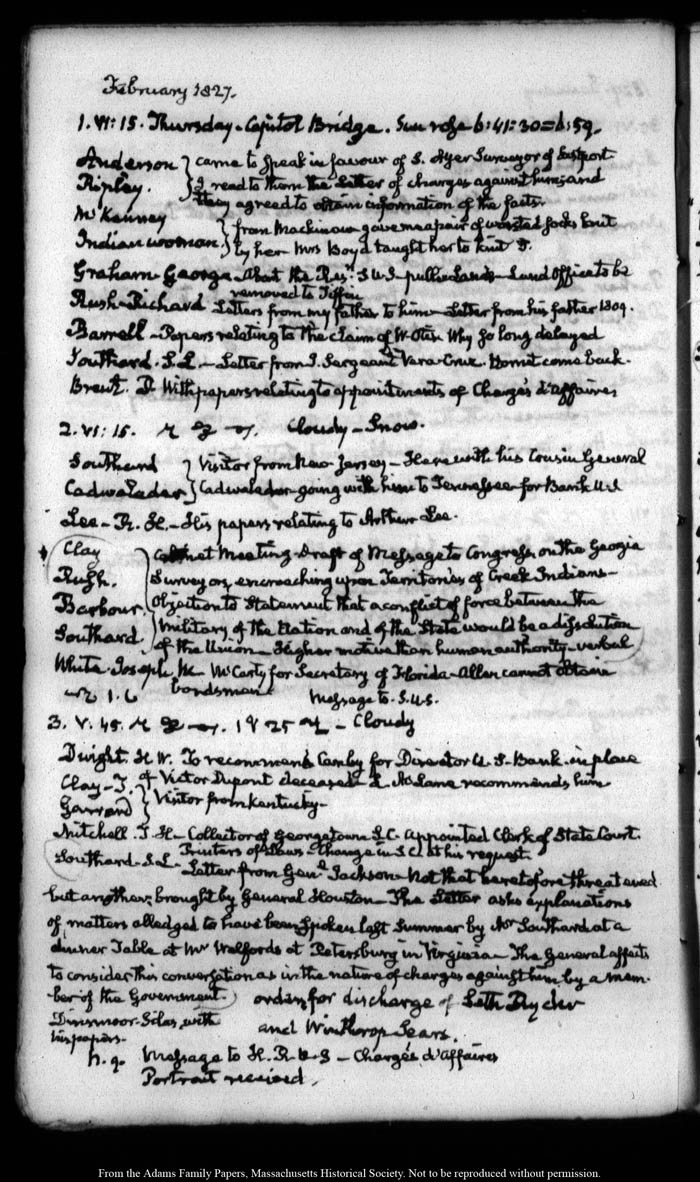 February 1827.
1. VI: 15. Thursday. Capitol Bridge. Sun rose 6:41:30 = 6:59.
Anderson } came to speak in favour of S. Ayer Surveyor of Eastport
Ripley. } I read to them the Letter of charges against him; and
they agreed to obtain information of the facts.
McKenney } from Mackinaw gave me a pair of worsted socks knit
Indian woman } by her Mrs Boyd taught her to knit
Graham George. About the U.S. public Lands Land Office to be
removed to Tiffin
Rush Richard Letters from my father to him Letter from his father 1809.
Barrell Papers relating to the claim of W. Otis. Why so long delayed
Southard. S. L. Letter from J. Sergeant Vera Cruz. Hornet come back.
Brent. D. With papers relating to appointments of Chargés d'affaires
2. VI: 15. Cloudy Snow.
Southard } Visitor from New Jersey Here with his Cousin General
Cadwalader } Cadwalader going with him to Tennessee for Bank U.S
Lee R. H. His papers relating to Arthur Lee.
Clay } Cabinet Meeting. Draft of Message to Congress, on the Georgia
Rush. Surveyors, encroaching upon Territories of Creek Indians
Barbour. Objection to Statement that a conflict of force between the
Southard } Military, of the Nation and of the State would be a dissolution
of the Union Higher motive than human authority verbal
White Joseph, M. McCarty for Secretary of Florida Allen cannot obtain
bondsmen Message to S. U.S.
3. V. 45. Cloudy
Dwight. H. W. To recommend Canby for Director U. S. Bank. in place
of Victor Dupont deceased L. McLane recommends him
Clay J. } Visitor from Kentucky
Garrard
Mitchell. T. R. Collector of Georgetown S.C. Appointed Clerk of State Court.
Printers of Laws Change in S.C. at his request.
Southard. S.L. Letter from Genl. Jackson Not that heretofore threatened
but another; brought by General Houston The Letter asks explanations
of matters alledged to have been spoken last Summer by Mr Southard at a
dinner Table at Mr Welfords at Petersburg in Virginia The General affects
to consider this conversation as in the nature of charges against him by a mem-
ber of the Government. orders for discharge of Seth Ryder
Dinsmoor Silas, with and Winthrop Sears.
his papers.
Message to H. R. U.S Chargés d'affaires
Portrait received.
From the Adams Family Papers, Massachusetts Historical Society. Not to be reproduced without permission.